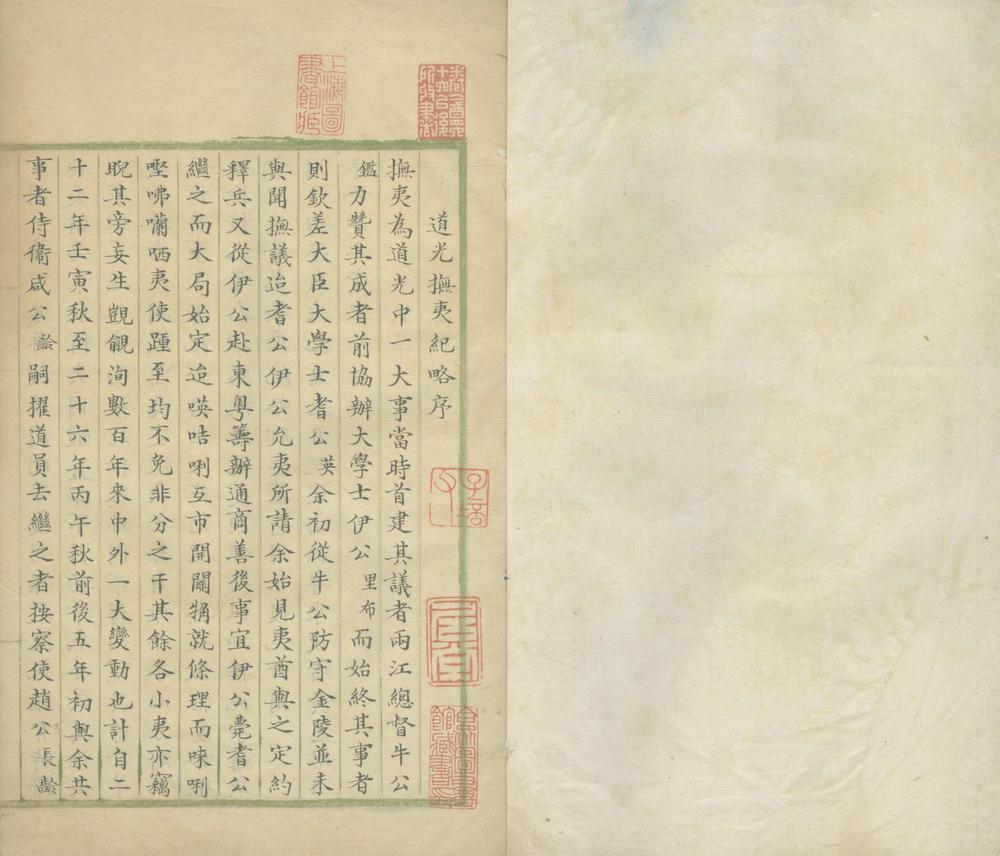 道光撫夷紀略序
撫夷為道光中一大事當時首建其議者兩江總督牛公
鑑力贊其成者前協辦大學士伊公里布而始終其事者
則欽差大臣大學士耆公英余初從牛公防守金陵並未
與聞撫議迨耆公伊公允夷所請余始見夷酋與之定約
釋兵又從伊公赴東粵籌辦通商善後事宜伊公薨耆公
繼之而大局始定迨𠸄咭唎互市開關犕就條理而㗰唎
㘆咈囒哂夷使踵至均不免非分之干其餘各小夷亦竊
睨其旁妄生覬覦洵數百年來中外一大變動也計自二
十二年壬寅秋至二十六年丙午秋前後五年初與余共
事者侍衛咸公齡嗣擢道員去繼之者按察使趙公長齡
上海圖書館藏